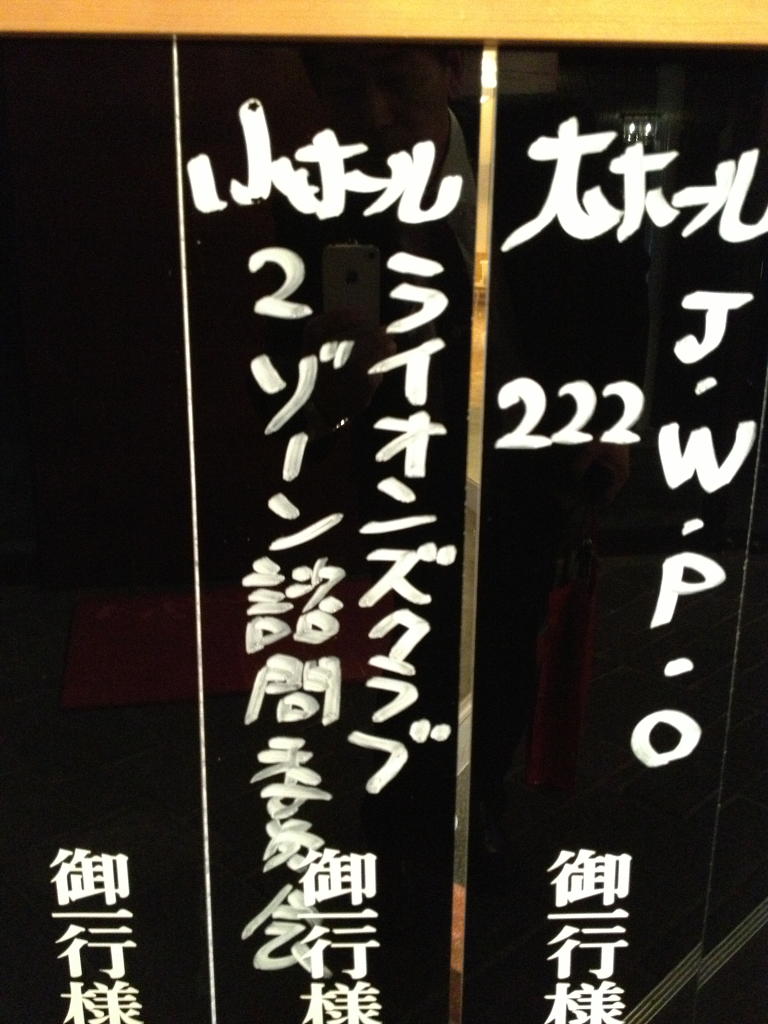 大ホール
J.W.P.O
222
御一行様
小ホール
ライオンズクラブ
2ゾーン諮問委員会
御一行様
御一行様